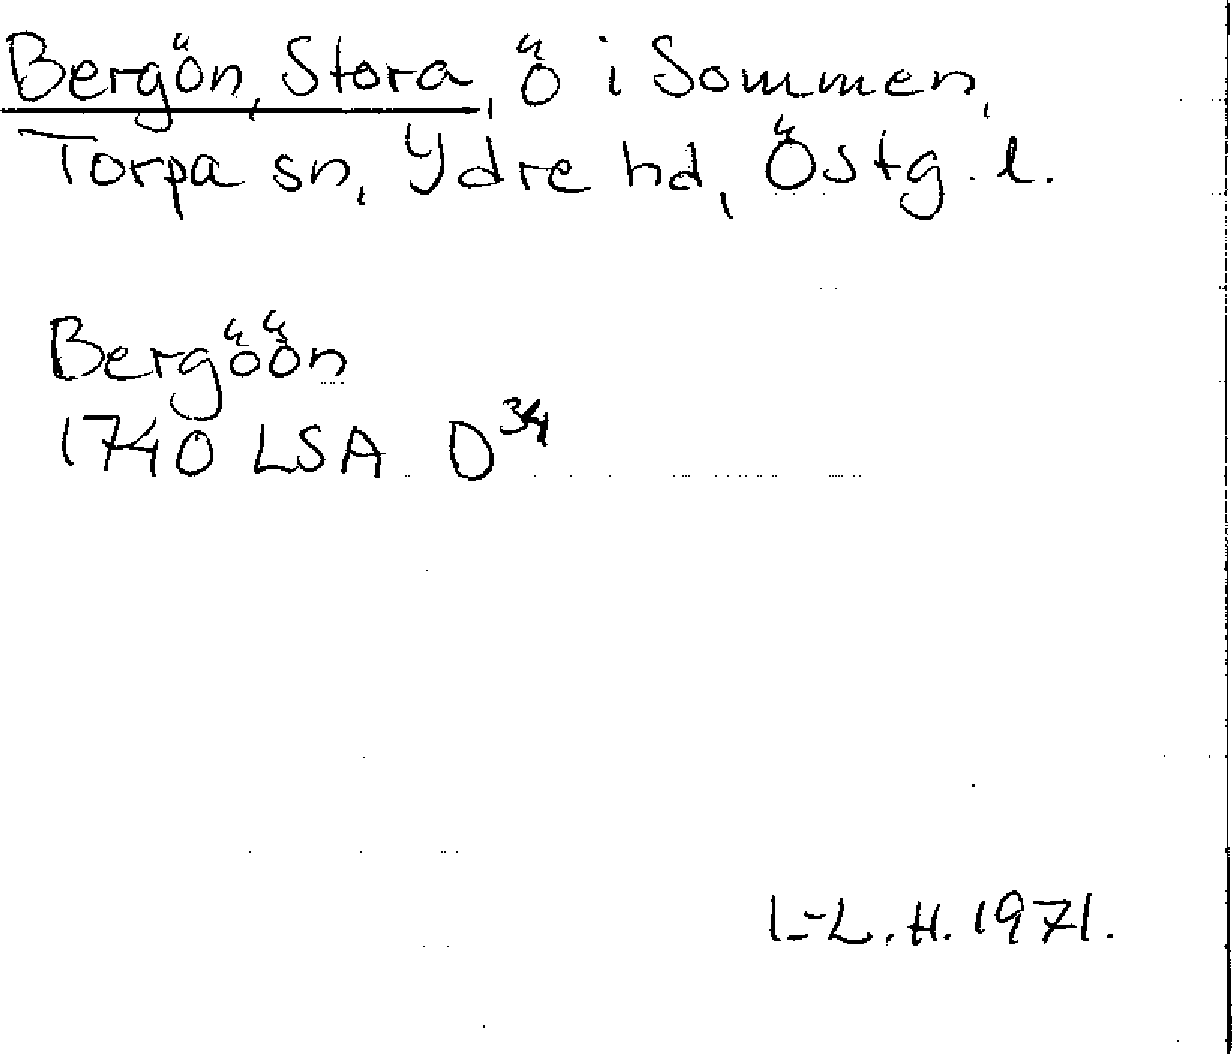 Bergön, Stora, ö i Sommen,
Torpa sn, Ydre hd, Östg. l.
Bergöön
1740 LSA D34
I.-L. H. 1971.